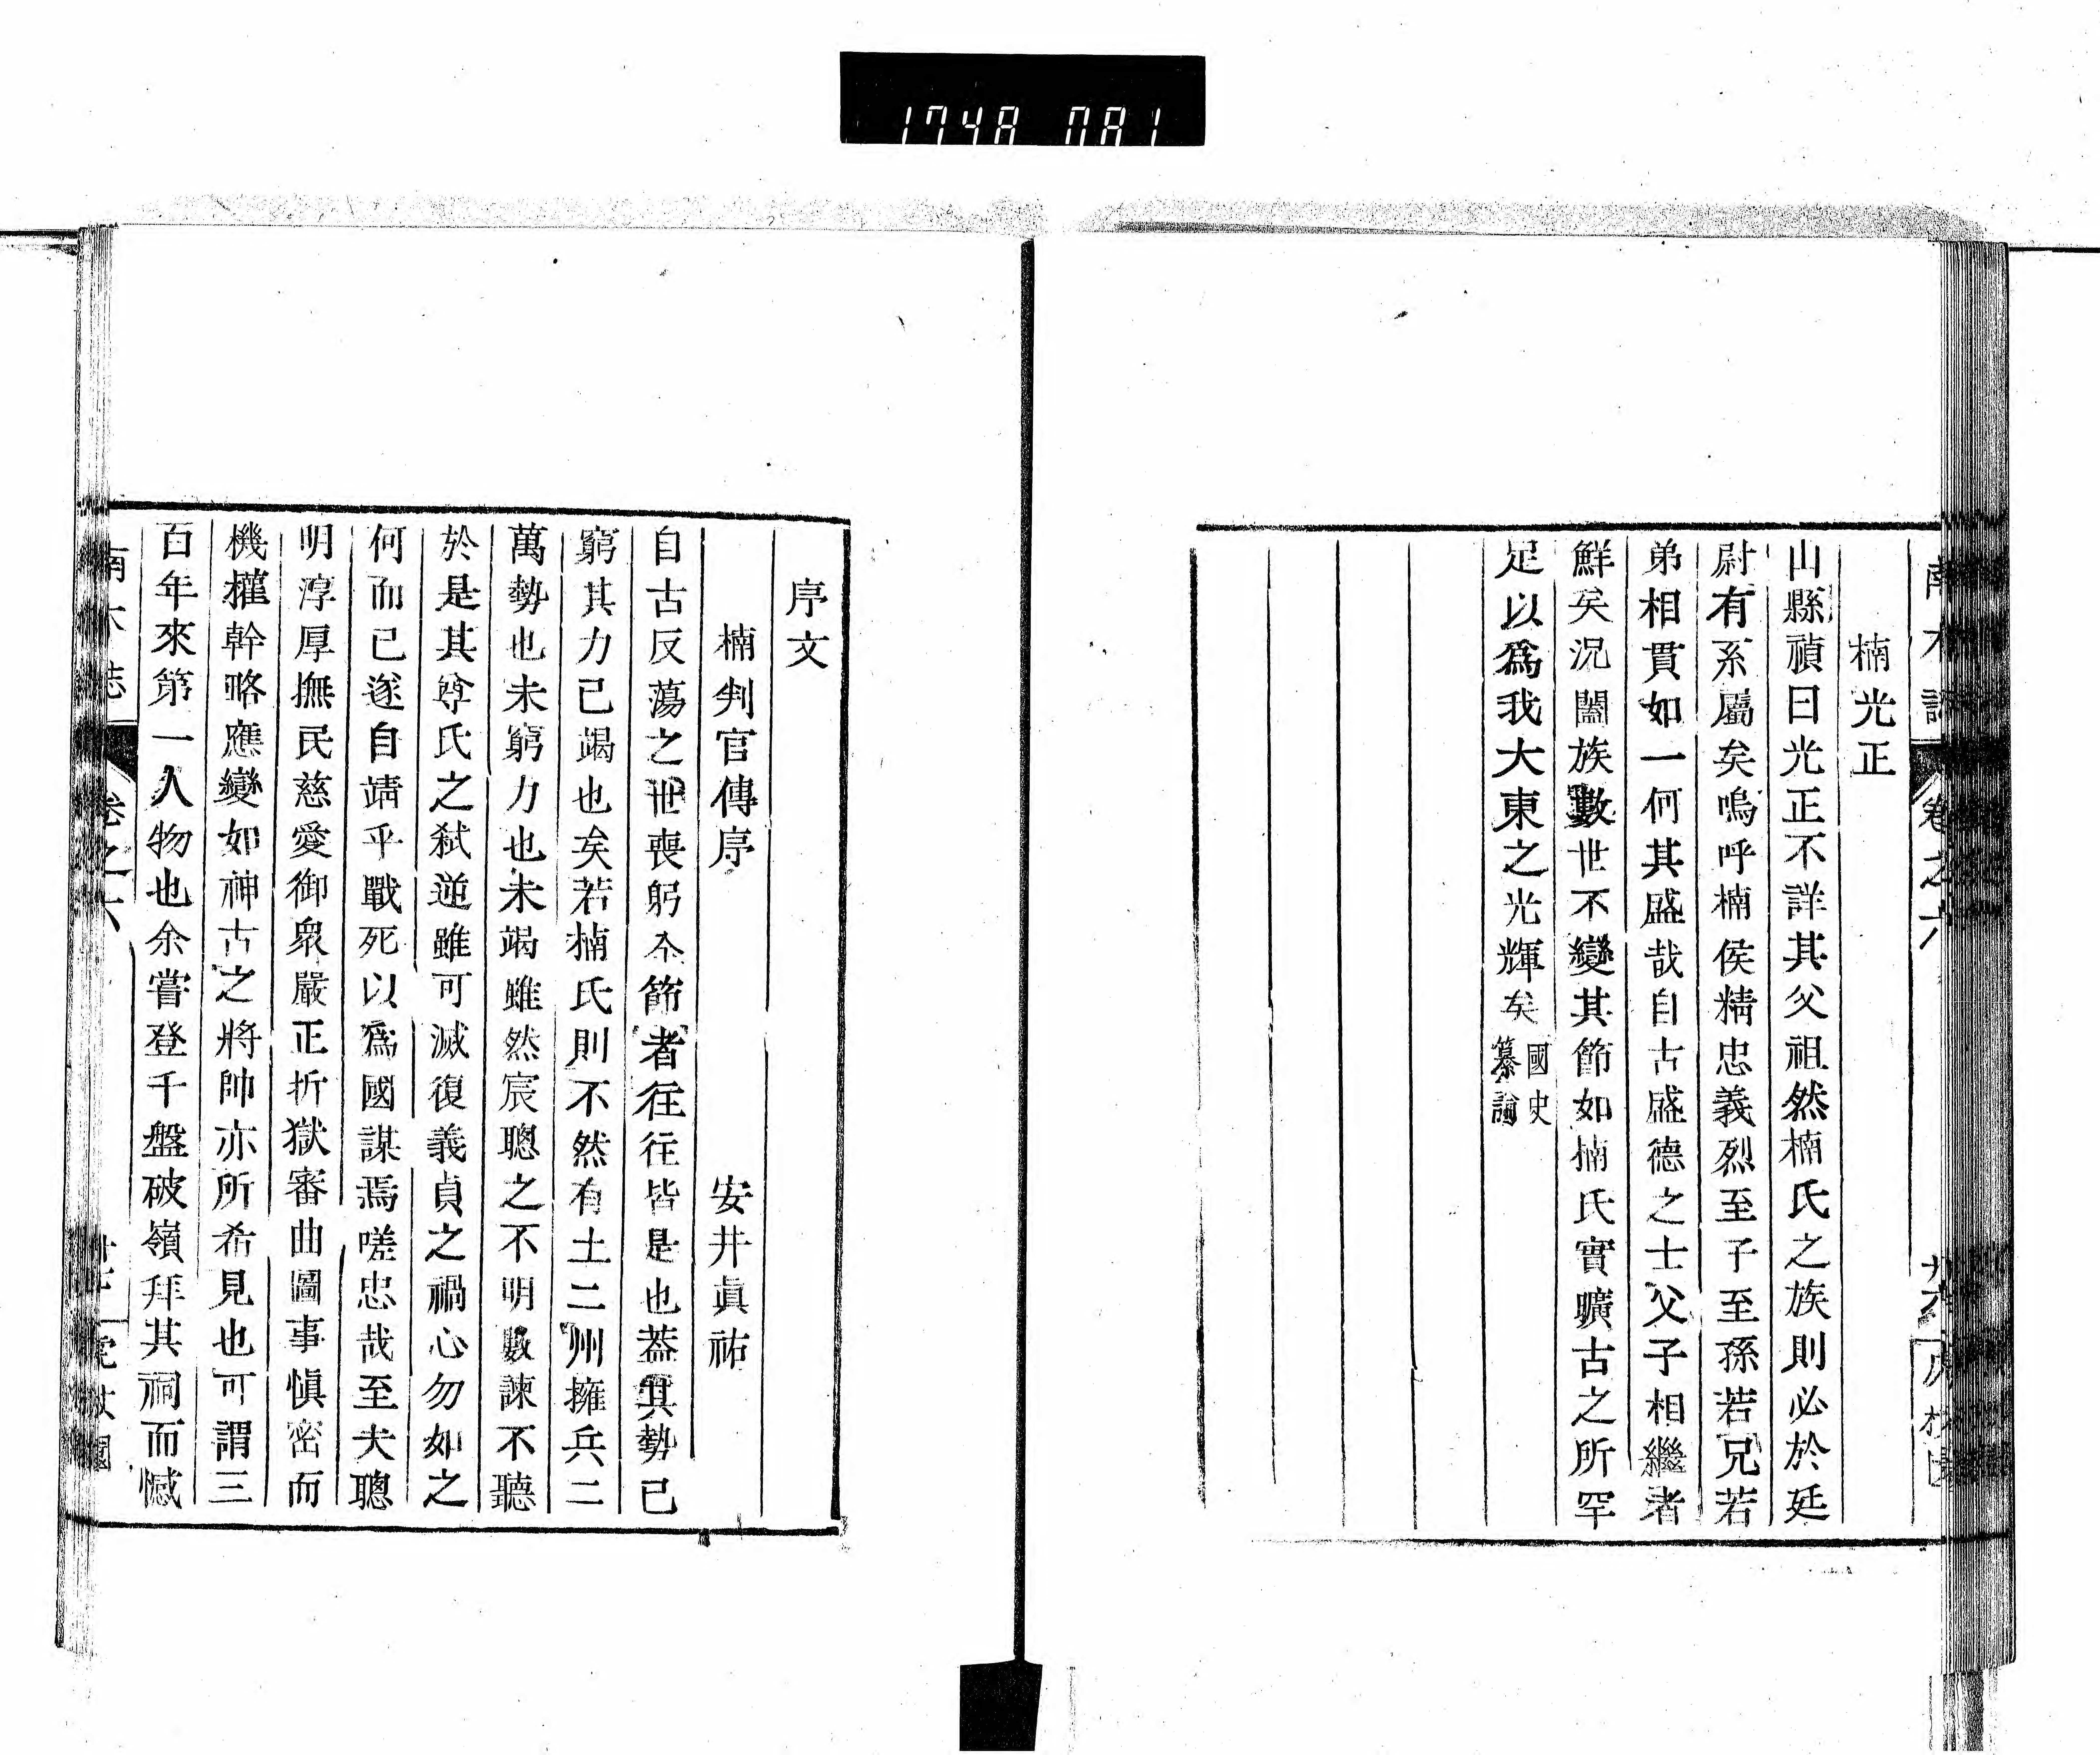 1748 081
楠光正
山縣禎曰光正不詳其父祖然楠氏之族則必於延
尉有系屬矣嗚呼楠侯精忠義烈至子至孫若兄若
弟相貫如一何其盛哉自古盛德之士父子相繼者
鮮矣況闔族數世不變其節如楠氏實曠古之所罕
足以爲我大東之光輝矣國史
纂論
序文
楠判官傳序 安井眞祐
自古反蕩之世喪躬夲節者往往皆是也葢其勢已
窮其力已竭也矣若楠氏則不然有土二州擁兵二
萬勢也未窮力也未竭雖然宸聰之不明數諫不聽
於是其尊氏之弑逆雖可滅復義貞之禍心勿如之
何而已遂自靖乎戰死以爲國謀焉嗟忠哉至夫聰
明淳厚撫民慈愛御衆嚴正折獄審曲圖事愼密而
機權幹略應變如神古之將帥亦所希見也可謂三
百年來第一人物也余嘗登千盤破嶺拜其祠而憾
卷之六